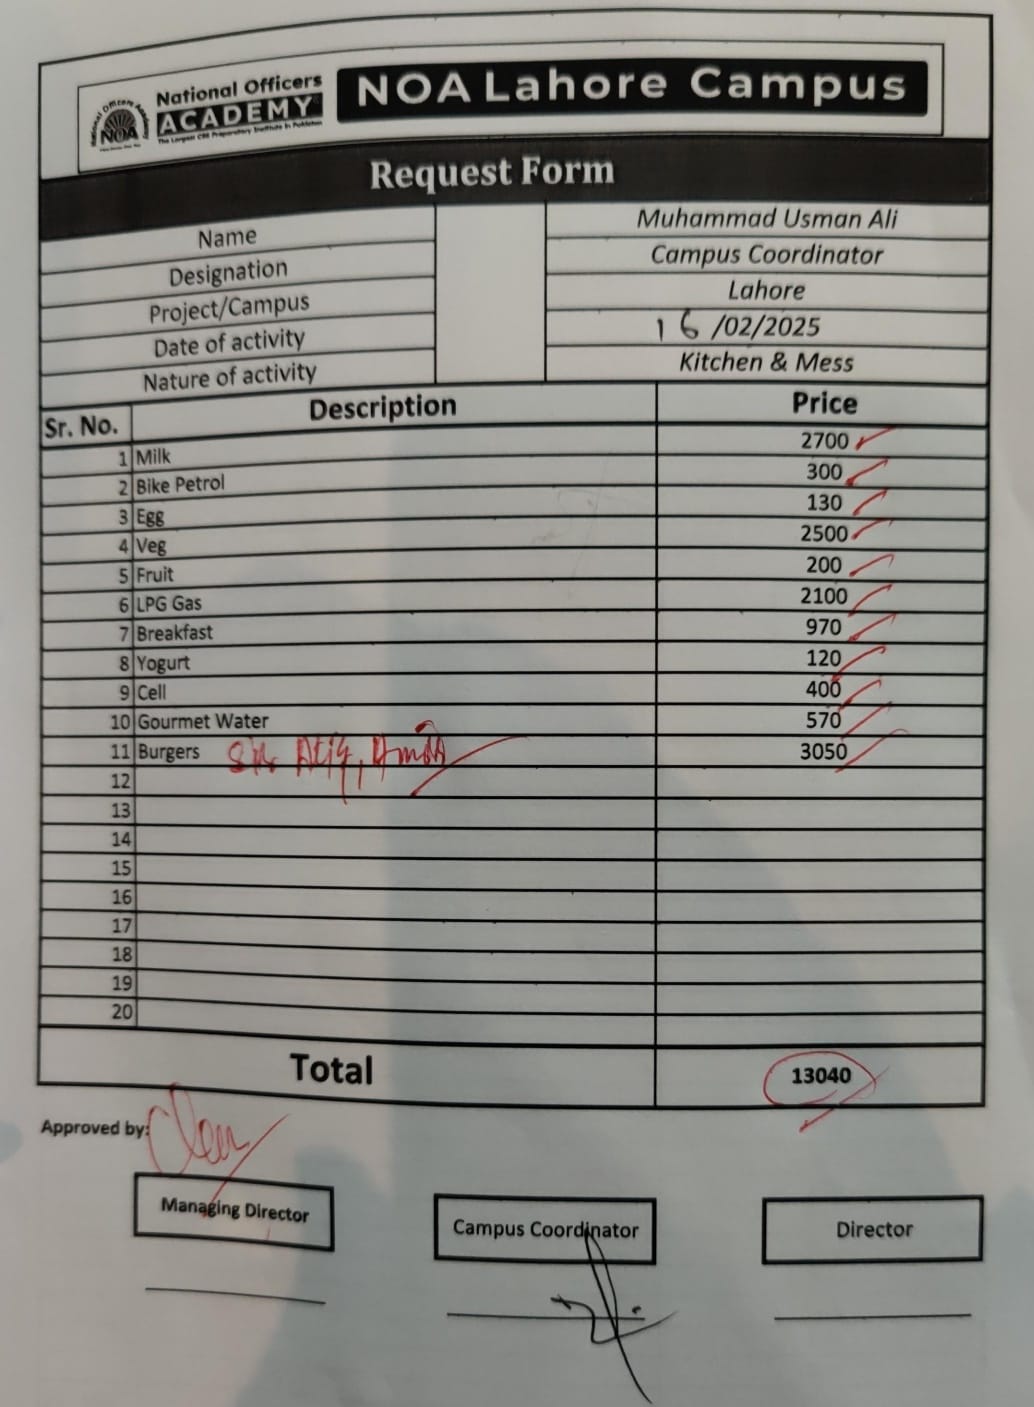 National Officers
ACADEMY
The Largest CSS Preparatory Institute in Pakistan
National Officers Academy
NOA
NOA Lahore Campus
Request Form
Name Muhammad Usman Ali
Designation Campus Coordinator
Project/Campus Lahore
Date of activity 16/02/2025
Nature of activity Kitchen & Mess
Sr. No. Description Price
1 Milk 2700
2 Bike Petrol 300
3 Egg 130
4 Veg 2500
5 Fruit 200
6 LPG Gas 2100
7 Breakfast 970
8 Yogurt 120
9 Cell 400
10 Gourmet Water 570
11 Burgers Sir Atiq, 3050
12
13
14
15
16
17
18
19
20
Total 13040
Approved by:
Managing Director Campus Coordinator Director